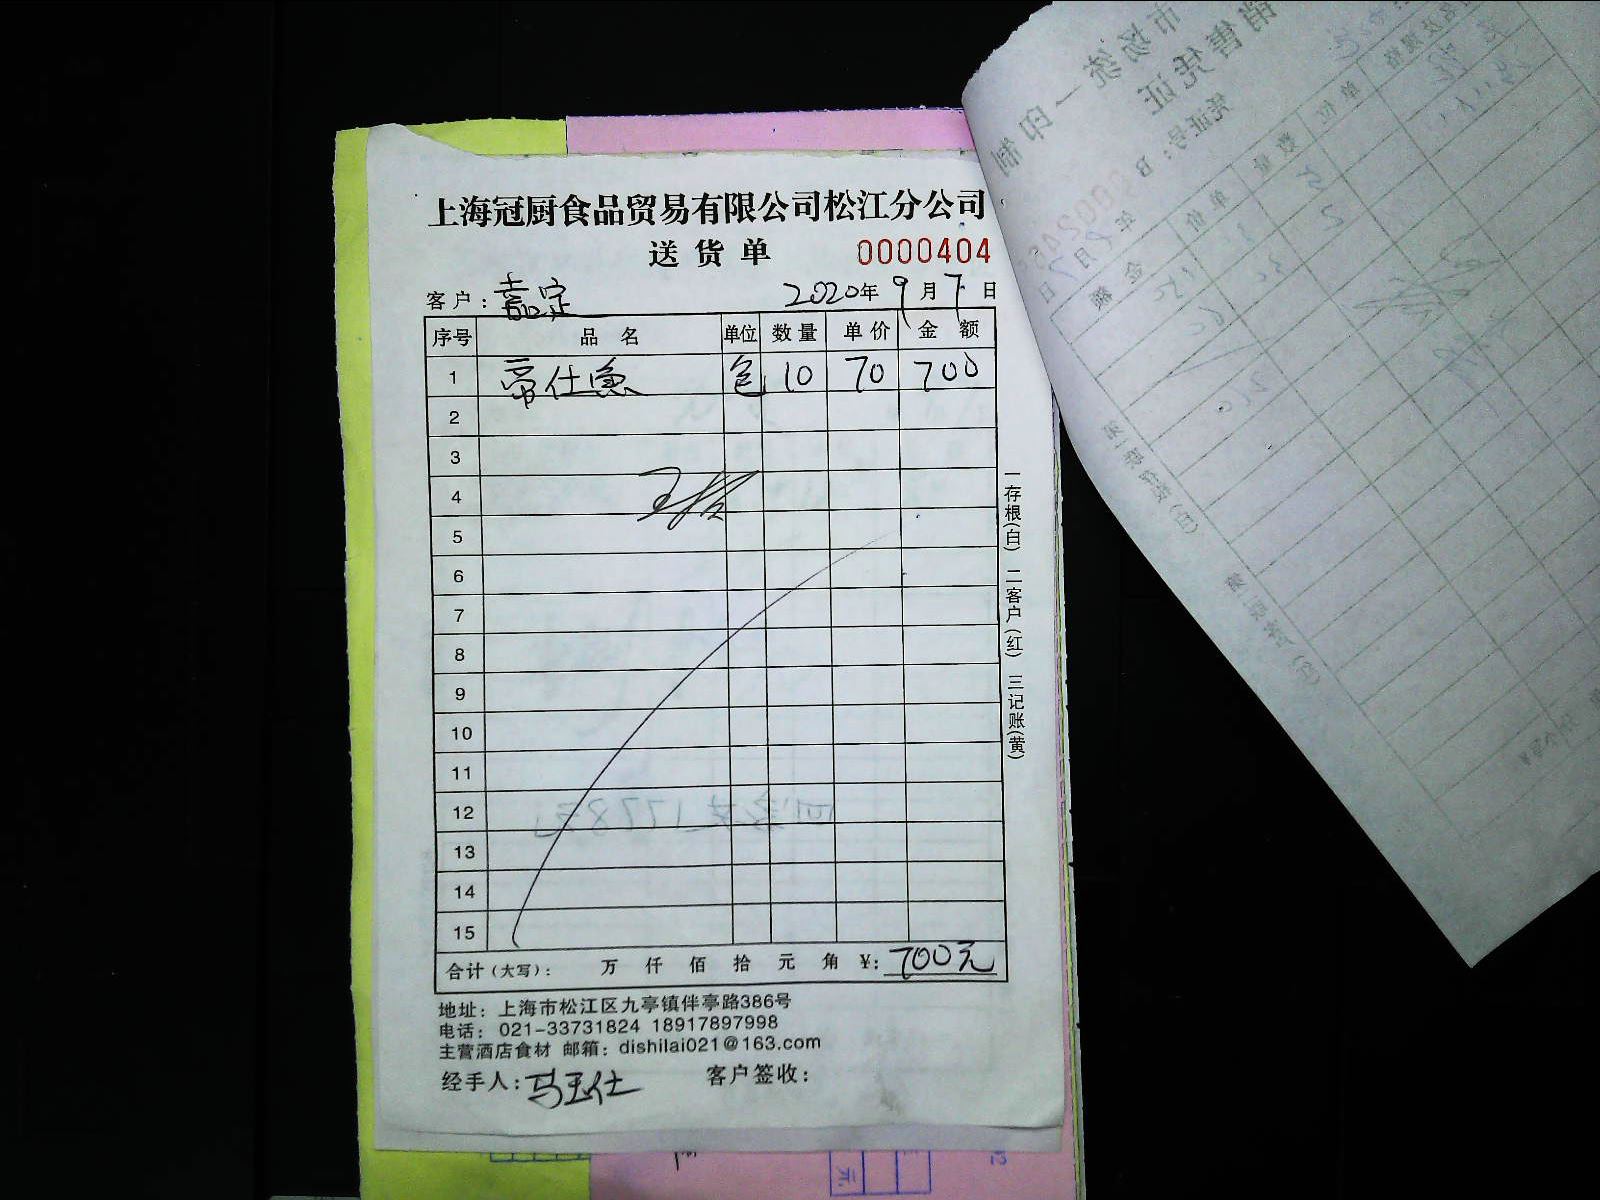 上海冠厨食品贸易有限公司松江分公司
送货单 0000404
客户：嘉定 2020年9月7日
序号 品名 单位 数量 单价 金额
1 帝仕鱼 包 10 70 700
2
3
4
5
6
7
8
9
10
11
12
13
14
15
合计（大写）： 万 仟 佰 拾 元 角 ¥：700元
地址：上海市松江区九亭镇伴亭路386号
电话：021-33731824 18917897998
主营酒店食材 邮箱：dishilai021@163.com
经手人：马玉仕 客户签收：
一存根（白） 二客户（红） 三记账（黄）
市场统一印制
销售凭证
凭证号：B
年 月 日
单位 数量 单价 金额